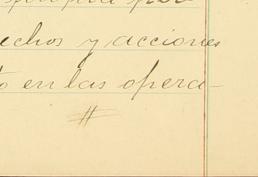 echos y acciones
to en las opera-
#